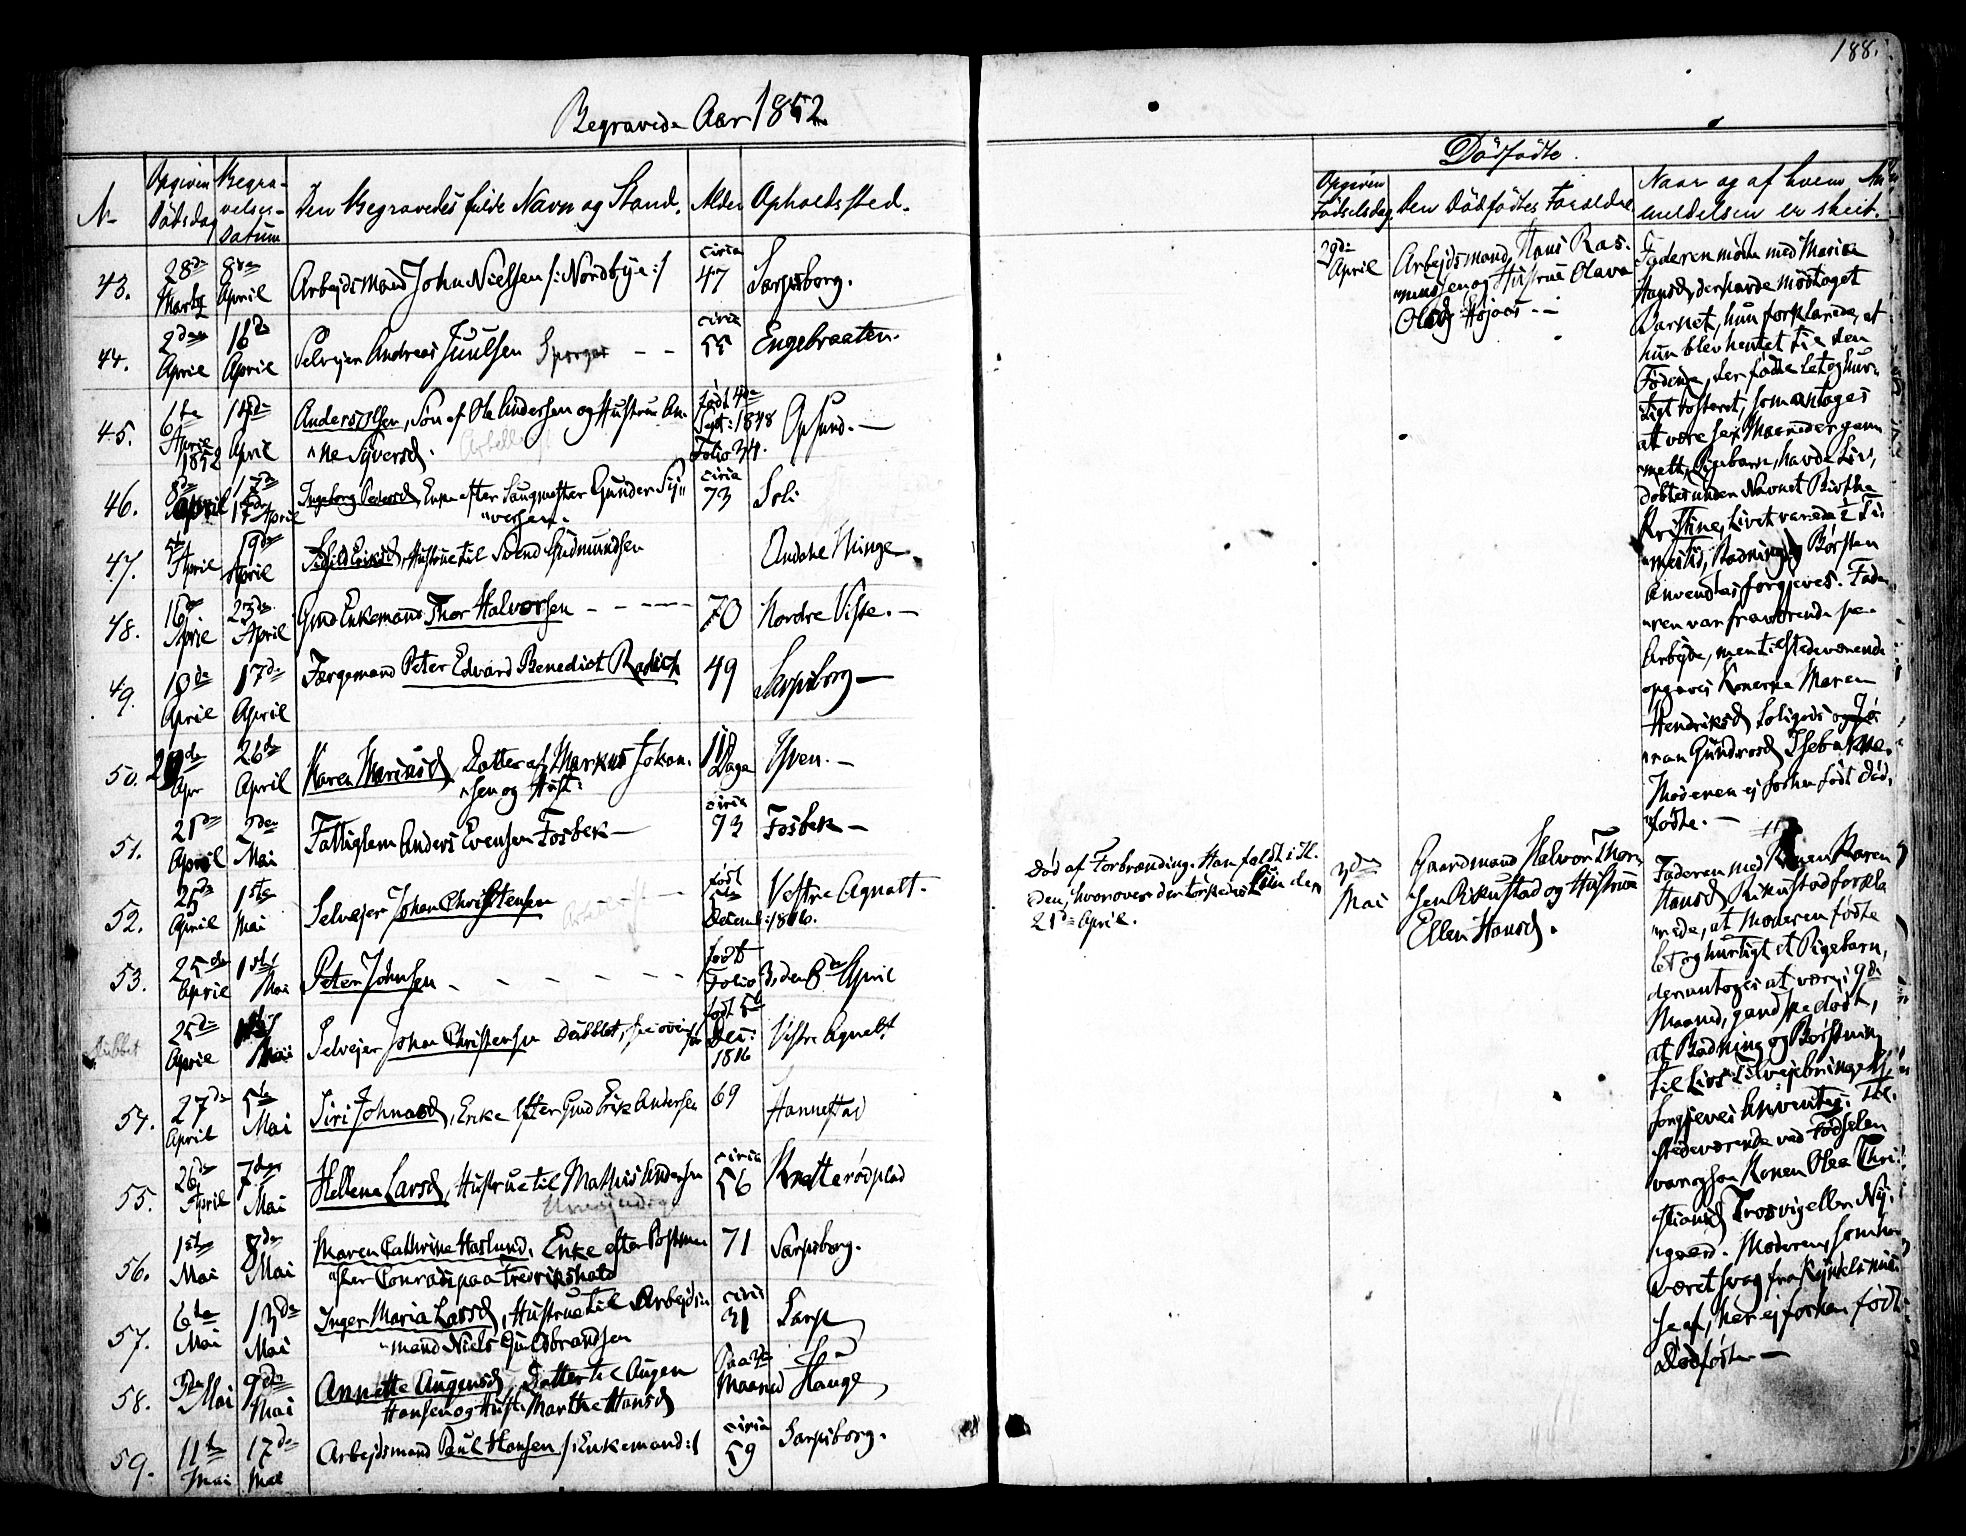 188.
Begravede Aar 1852
No
Opgiven
Dødsdag
Begra-
velses-
Datum
Den Begravedes fulde Navn og Stand.
Alder
Opholdssted.
43.
28de
Martz
8de
April
Arbejdsmand John Nielsen /:Nordbye:/
circa
47
Sarpsborg.
44.
2den
April
16de
April
Selvejer Andreas Juulsen
circa
55
Engebraaten.
45.
6te
April
1852
April
Anders Olsen, Søn af Ole Andersen og Hustrue An-
"ne Syversd.
født 4de
Sept: 1848
Folio 34.
Opsund. —
46.
8de
April
17de
April
Ingeborg Pedersd, Enke efter Saugmester Gunder Sy"
"versen.
circa
73
Soli
47.
April
19de
April
Eriksd, Hustrue til Svend Gudmundsen
Andehe Ninge
48.
16de
April
23de
April
Gmd Enkemand Thor Halvorsen - - - - -
70
Nordre Viste. —
49.
10de
April
17de
April
Færgemand Peter Edvard Benedict Radich
49
Sarpsborg —
50.
20de
Apr
26de
April
Karen Mariusd, Datter af Markus Johan-
"sen og Hust:
11
Dage
Yven. —
51.
21de
April
2den
Mai
Fattiglem Anders Evensen Fosbek —
circa
73
Fosbek —
52.
25de
April
1ste
Mai
Selvejer Johan Christensen
født
5te
Decemb: 1816.
Vestre Agnalt.
Død af Forbrænding. Han faldt i Il-
den, hvorover der tørkedes Liin den
21de April.
53.
25de
April
1ste
Mai
Peter Johnsen - - - - - -
født
Folio 3, den 8de April
Dubbet
25de
April
Mai
Selvejer Johan Christensen Dubblet, see oven
for
født 5te
Dec:
1816
Vestre Agnalt
54.
27de
April
5te
Mai
Siri Johnasd, Enke efter Gmd Erik Andersen
69
Hannestad
55.
26de
April
7de
Mai
Hellena Larsd, Hustrue til Mathis Andersen
circa
56
Knatterødplad
56.
1ste
Mai
8de
Mai
Maren Cathrine Haslund, Enke efter Postme-
"ster Conradi paa Fredrikshald
71
Sarpsborg.
57.
6te
Mai
13de
Mai
Inger Maria Larsd, Hustrue til Arbejds"
"mand Niels Guldbrandsen
circa
31
Sarp
58.
3de Mai
9de
Mai
Annette Augensd, Datter til Augen
Hansen og Hust: Marthe Hansd
Paa 4de
Maaned
Hauge
59.
11te
Mai
17de
Mai
Arbejdsmand Paul Hansen /:Enkemand:/
circa
59
Sarpsborg.
Dødfødte.
Opgiven
Fødselsdag
Den Dødfødtes Forældre
Naar og af hvem An-
meldelsen er skeet.
April
Arbejdsmand Hans Ras-
"mussen og Hustrue Olava
Olsd Højaas. -
Faderen mødte med Marie
Hansd, der havde modtaget
Barnet, hun forklarede, at
hun blev hentet til den
Fødende, der fødte let og hur-
tigt Fosteret, som antages
at være sex Maaneder gam-
melt, Pigebarn, havde Liv,
døbtes under Navnet Birthe
Kristine, Livet varede ½ Ti-
"mestid, Badning og Børsten
anvendtes forgjeves. Fade-
"ren var fraværende paa
Arbejde, men tilstedeværende
opgaves Konerne Maren
Hendriksd Soligods og Jø-
"ran Gundersd Isebakke.
Moderen ej forhen født Død-
"fødte. —
3de
Mai
Gaardmand Halvor Thor-
"sen Rikustad og Hustrue
Ellen Hansd.
Faderen med Konen Karen
Hansd Rikustad forkla-
"rede, at Moderen fødte
let og hurtigt et Pigebarn,
der antoges at være i 9de
Maaned, gandske dødt,
at Badning og Børstning
til Livs Tilvejebringelse
forgjeves anventes. Til-
stedeværende ved Fødselen
var ogsaa Konen Olea Chri-
"stiansd Trosvig eller Ny-
"gaard. Moderen, som har
været svag fra
se af, har ej forhen født
Dødfødte —